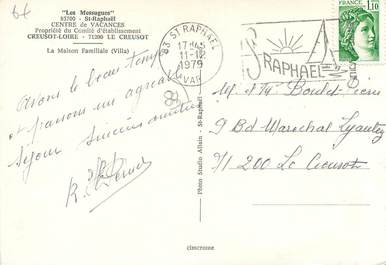 64
"Les Messugues"
83700 - St-Raphaël
CENTRE de VACANCES
Propriété du Comité d'établissement
CREUSOT-LOIRE - 71200 LE CREUSOT
La Maison Familiale (Villa)
Avons le beau temps
et passons un agréable
séjour sincères amitiés
83 ST RAPHAEL
17H45
11-12
1979
VAR
ST RAPHAEL
FRANCE
1,10
Photo Studio Alain - St-Raphaël
M. et Mme
9 Bd Marechal Lyautey
71200 Le Creusot
cimcrome